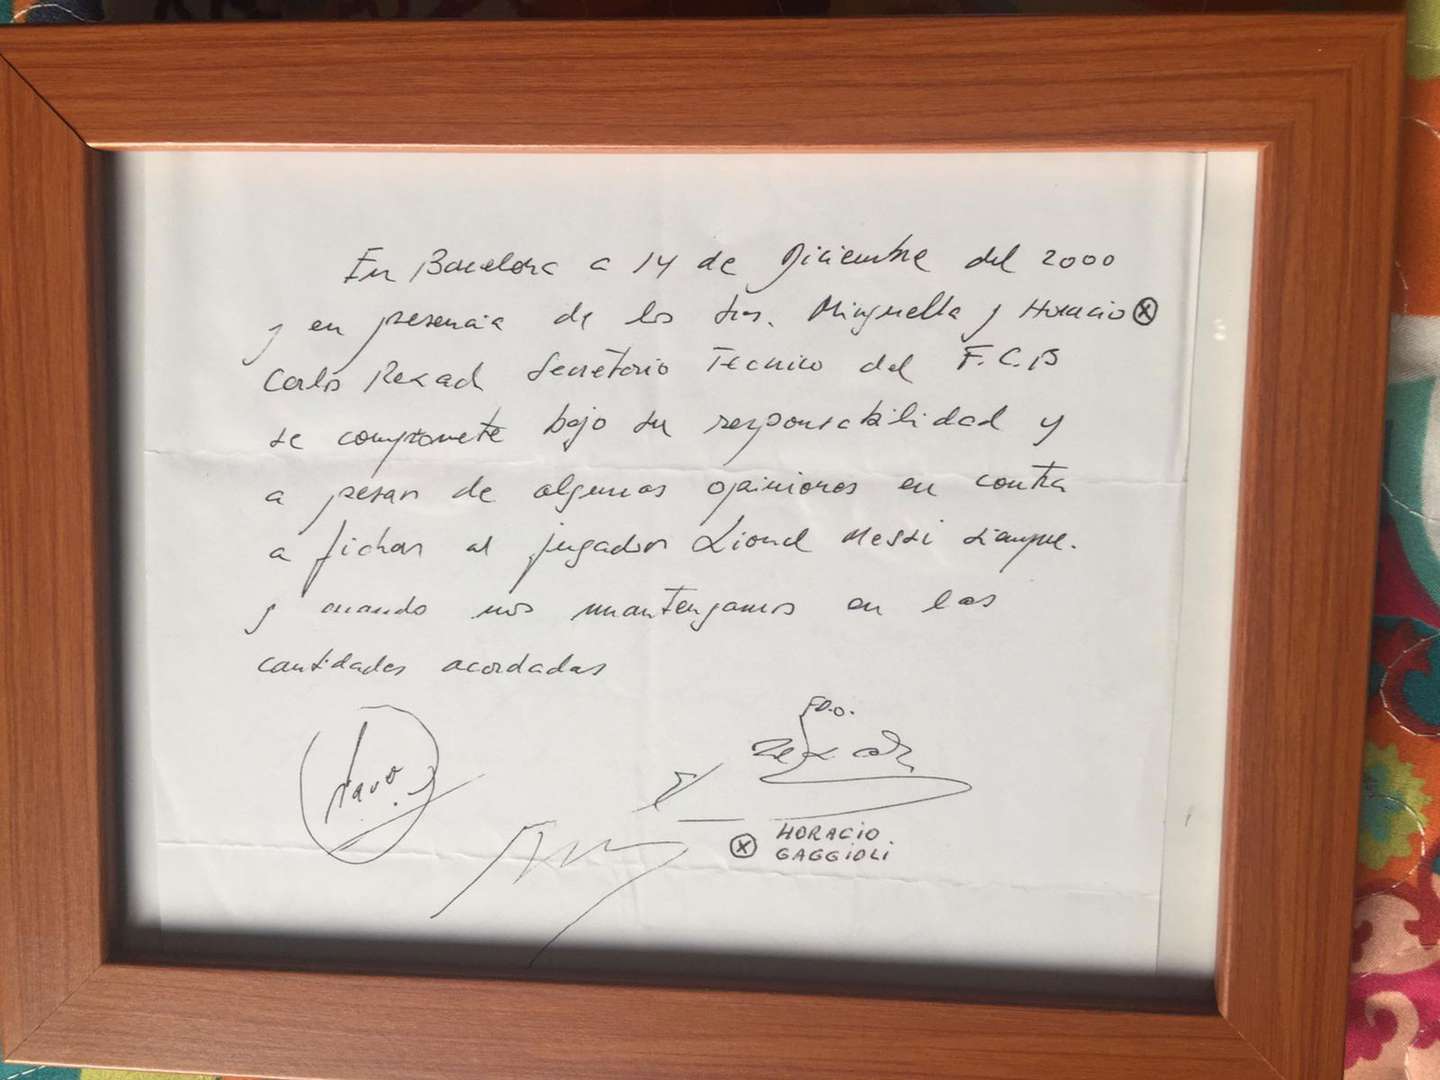 En Barcelona a 14 de Diciembre del 2000
y en presencia de los Srs. Minguella y Horacio ⓧ
Carlos Rexach Secretario Tecnico del F.C.B
se compromete bajo su responsabilidad y
a pesar de algunas opiniones en contra
a fichar al jugador Lionel Messi siempre.
y cuando nos mantengamos en las
cantidades acordadas
FDO.
Rexach
ⓧ HORACIO
GAGGIOLI